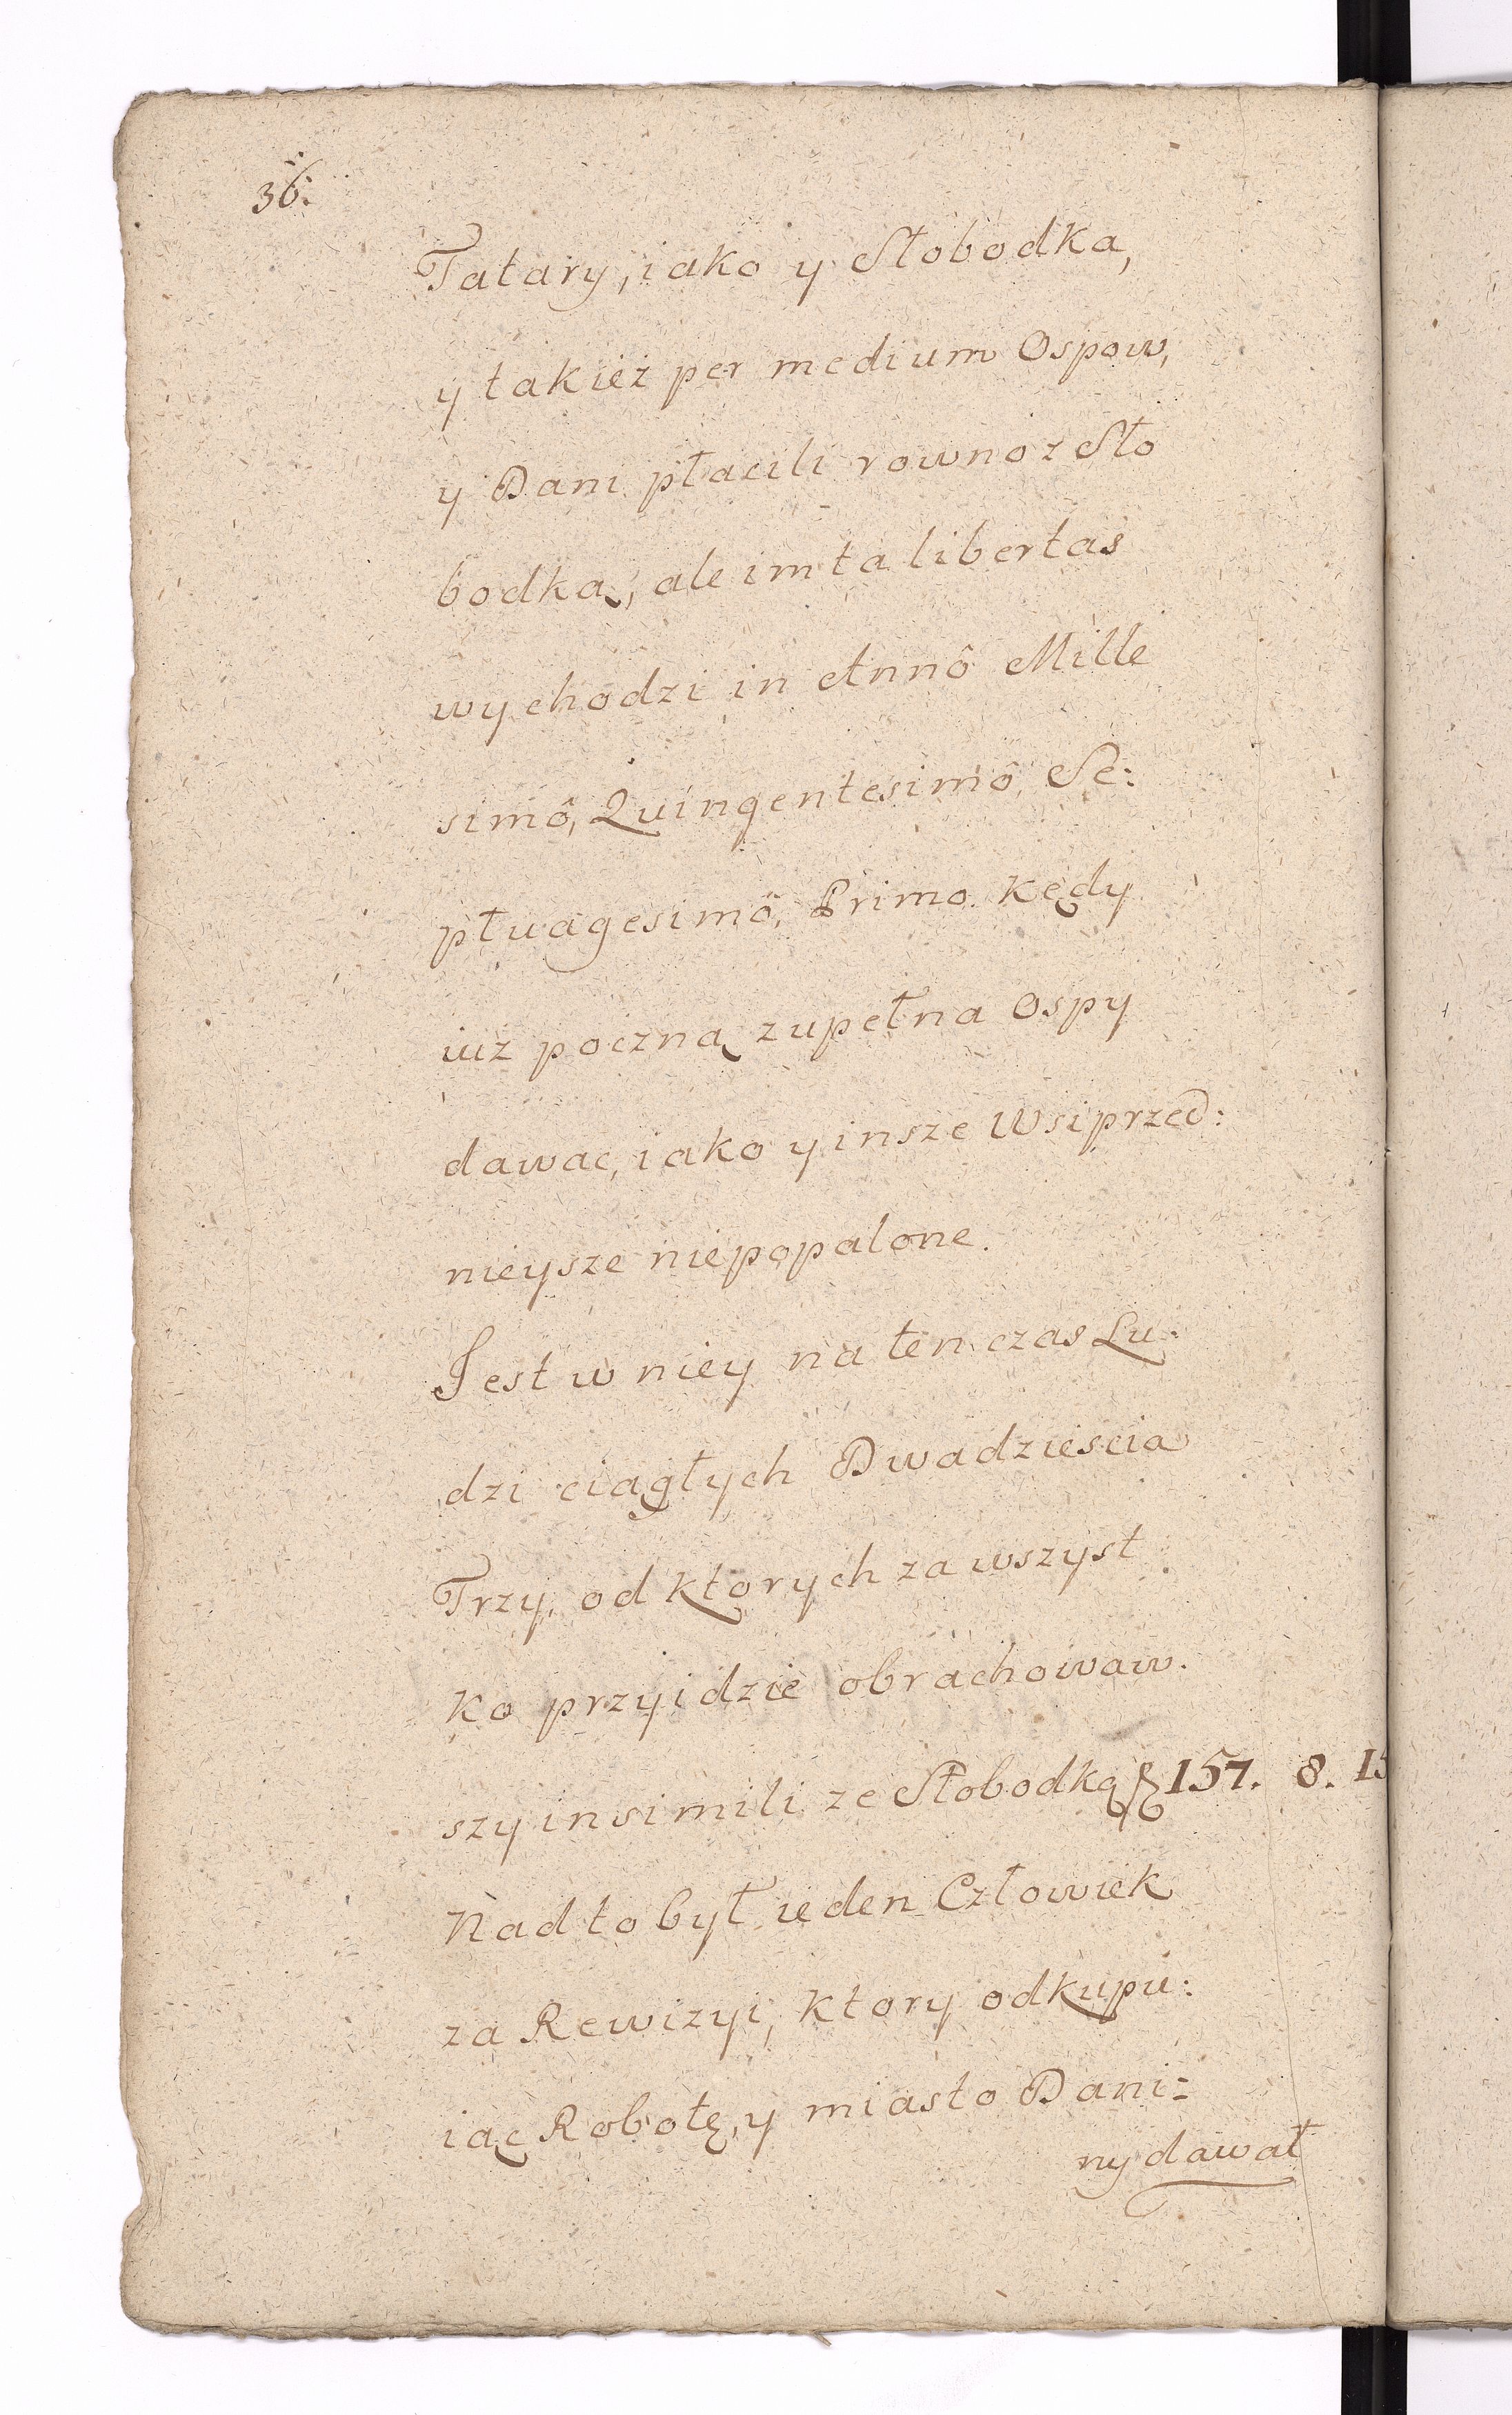 36.
Tatary, iako y Słobodka,
y takiez per medium Ospow,
y Dani płacili rowno z Sło
bodką, ale im ta libertas
wychodzi in Annô Mille
simô, Quingentesimô, Se:
ptuagesimô, Primo. Kędy
iuz poczną zupełna Ospy
dawac, iako y insze Wsi przed:
nieysze niepopalone.
Jest w niey na ten czas Lu:
dzi ciagłych Dwadziescia
Trzy, od ktorych za wszyst
ko przyidzie obrachowaw.
szy in simili ze Słobodką 157. 8.
Nad to był ieden Człowiek
za Rewizyi, ktory odkupu:
iąc Robotę, y miasto Dani:
ny dawał